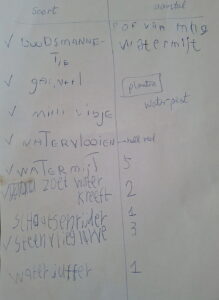 soort aantal
BOOTSMANNE-
TJE
watermijt
GARNAAL
planten
waterpest
WATERVLOOIEN heel veel
WATERMIJT 5
zoet water
kreeft 2
SCHAATSENRIJDER 1
steenvlieglarve 3
waterjuffer 1